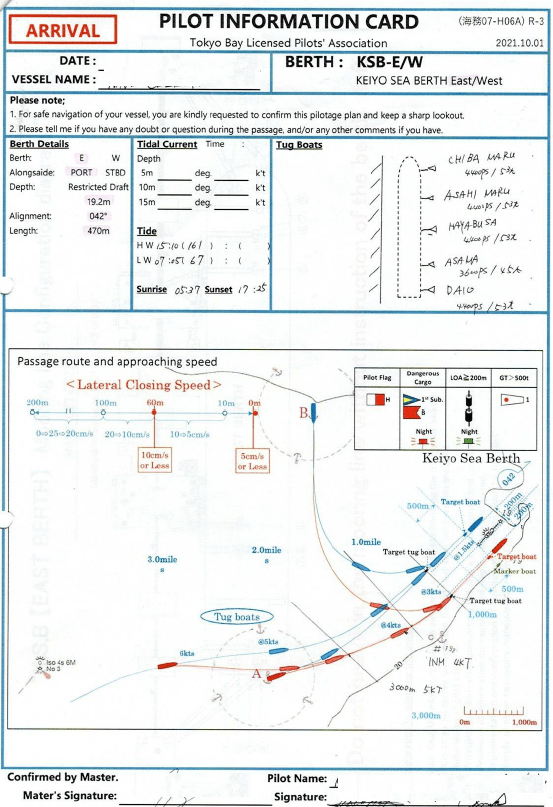 ARRIVAL
PILOT INFORMATION CARD
(海務07-H06A) R-3
Tokyo Bay Licensed Pilots' Association
2021.10.01
DATE :
VESSEL NAME :
BERTH : KSB-E/W
KEIYO SEA BERTH East/West
Please note;
1. For safe navigation of your vessel, you are kindly requested to confirm this pilotage plan and keep a sharp lookout.
2. Please tell me if you have any doubt or question during the passage, and/or any other comments if you have.
Berth Details
Berth: E W
Alongside: PORT STBD
Depth: Restricted Draft
19.2m
Alignment: 042°
Length: 470m
Tidal Current Time :
Depth
5m deg. k't
10m deg. k't
15m deg. k't
Tide
H W 15:10 ( 161 ) : ( )
L W 07:05( 67 ) : ( )
Sunrise 05:37 Sunset 17:25
Tug Boats
CHIBA MARU
4400PS / 53t
ASAHI MARU
4400PS / 53t
HAYABUSA
4400PS / 53t
ASAMA
3600PS / 45t
DAIO
4400PS / 53t
Passage route and approaching speed
<Lateral Closing Speed>
200m 100m 60m 10m 0m
H
0⇒25⇒20cm/s 20⇒10cm/s 10⇒5cm/s
10cm/s
or Less
5cm/s
or Less
B
Pilot Flag
Dangerous Cargo
LOA≧200m
GT>500t
H
1st Sub.
B
1
Night
Night
Keiyo Sea Berth
042
200m
500m
Target boat
@1.5kts
1.0mile
Target tug boat
Target boat
Marker boat
500m
3.0mile
s
2.0mile
s
@3kts
Target tug boat
1,000m
Tug boats
@4kts
@5kts
6kts
A
Iso 4s 6M
No 3
C
20
1NM 4KT
3000m 5KT
3,000m
0m 1,000m
Confirmed by Master.
Mater's Signature:
Pilot Name:
Signature: